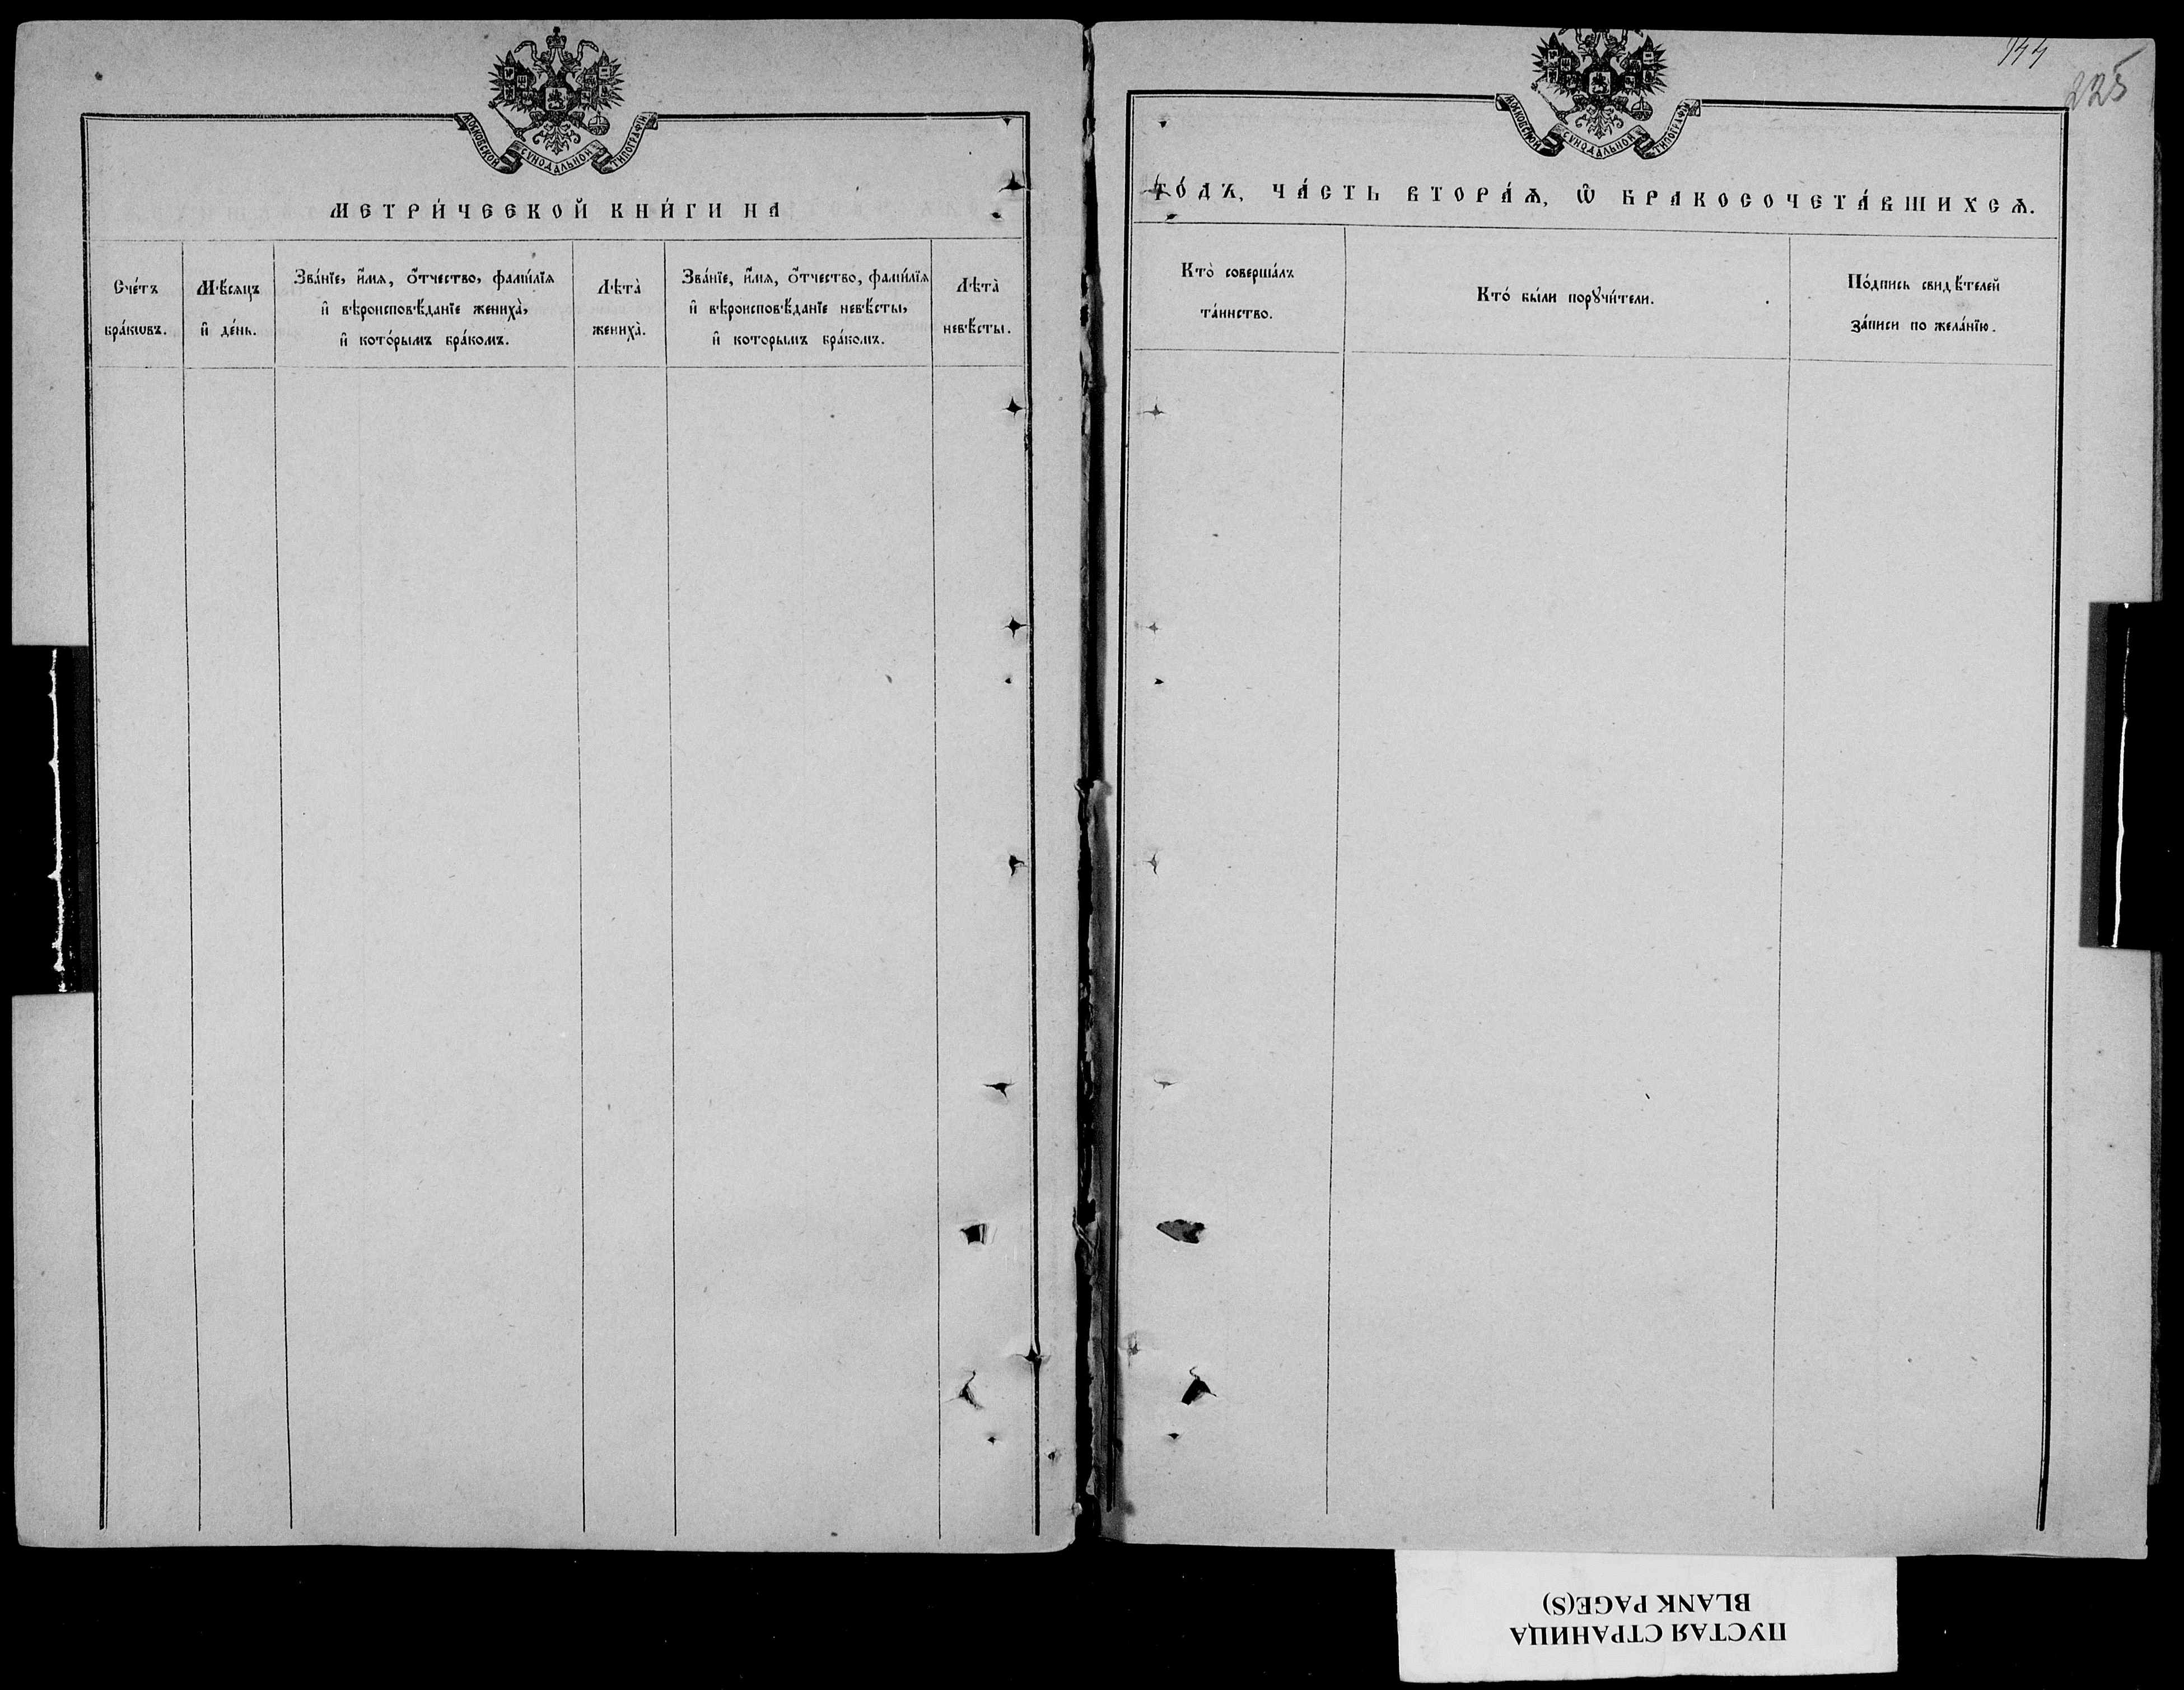 МОСКОВСКОЙ СУНОДАЛЬНОЙ ТИПОГРАФІИ
МЕТРИ́ЧЕСКОЙ КНИ́ГИ НА
Сче́тъ
бра́кѡвъ.
Мѣ́сяцъ
и҆ де́нь.
Зва́нїе, и҆́мя, ѻ҆́тчество, фами́лїя
и҆ вѣроисповѣ́данїе жениха̀,
и҆ кото́рымъ бра́комъ.
Лѣта̀
жениха̀.
Зва́нїе, и҆́мя, ѻ҆́тчество, фами́лїя
и҆ вѣроисповѣ́данїе невѣ́сты,
и҆ которымъ бра́комъ.
Лѣта̀
невѣ́сты.
144
225
МОСКОВСКОЙ СУНОДАЛЬНОЙ ТИПОГРАФІИ
ГО́ДЪ, ЧА́СТЬ ВТОРА́Ѧ, Ѽ БРАКОСОЧЕТА́ВШИХСѦ.
Кто̀ соверша́лъ
та́инство.
Кто́ бы́ли порꙋчи́тели.
По́дпись свидѣ́телей
за́писи по жела́нїю.
ПУСТАЯ СТРАНИЦА
BLANK PAGE(S)